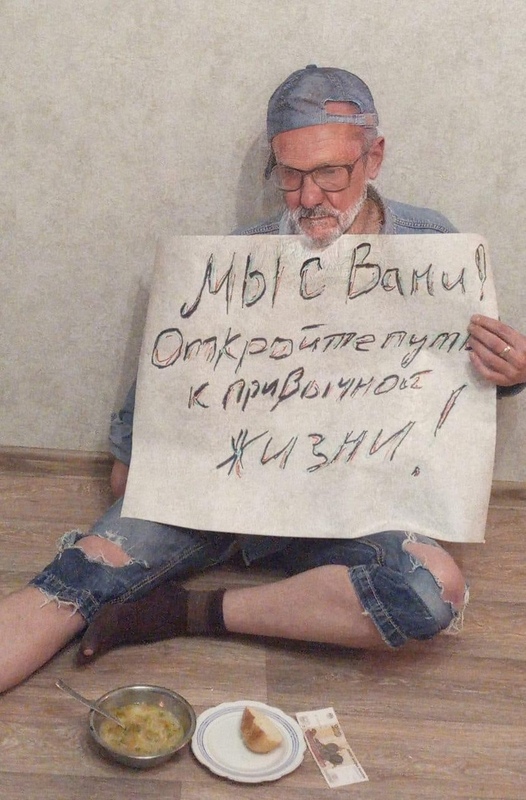 Мы с Вани!
Откройте путь
к привычной
жизни!